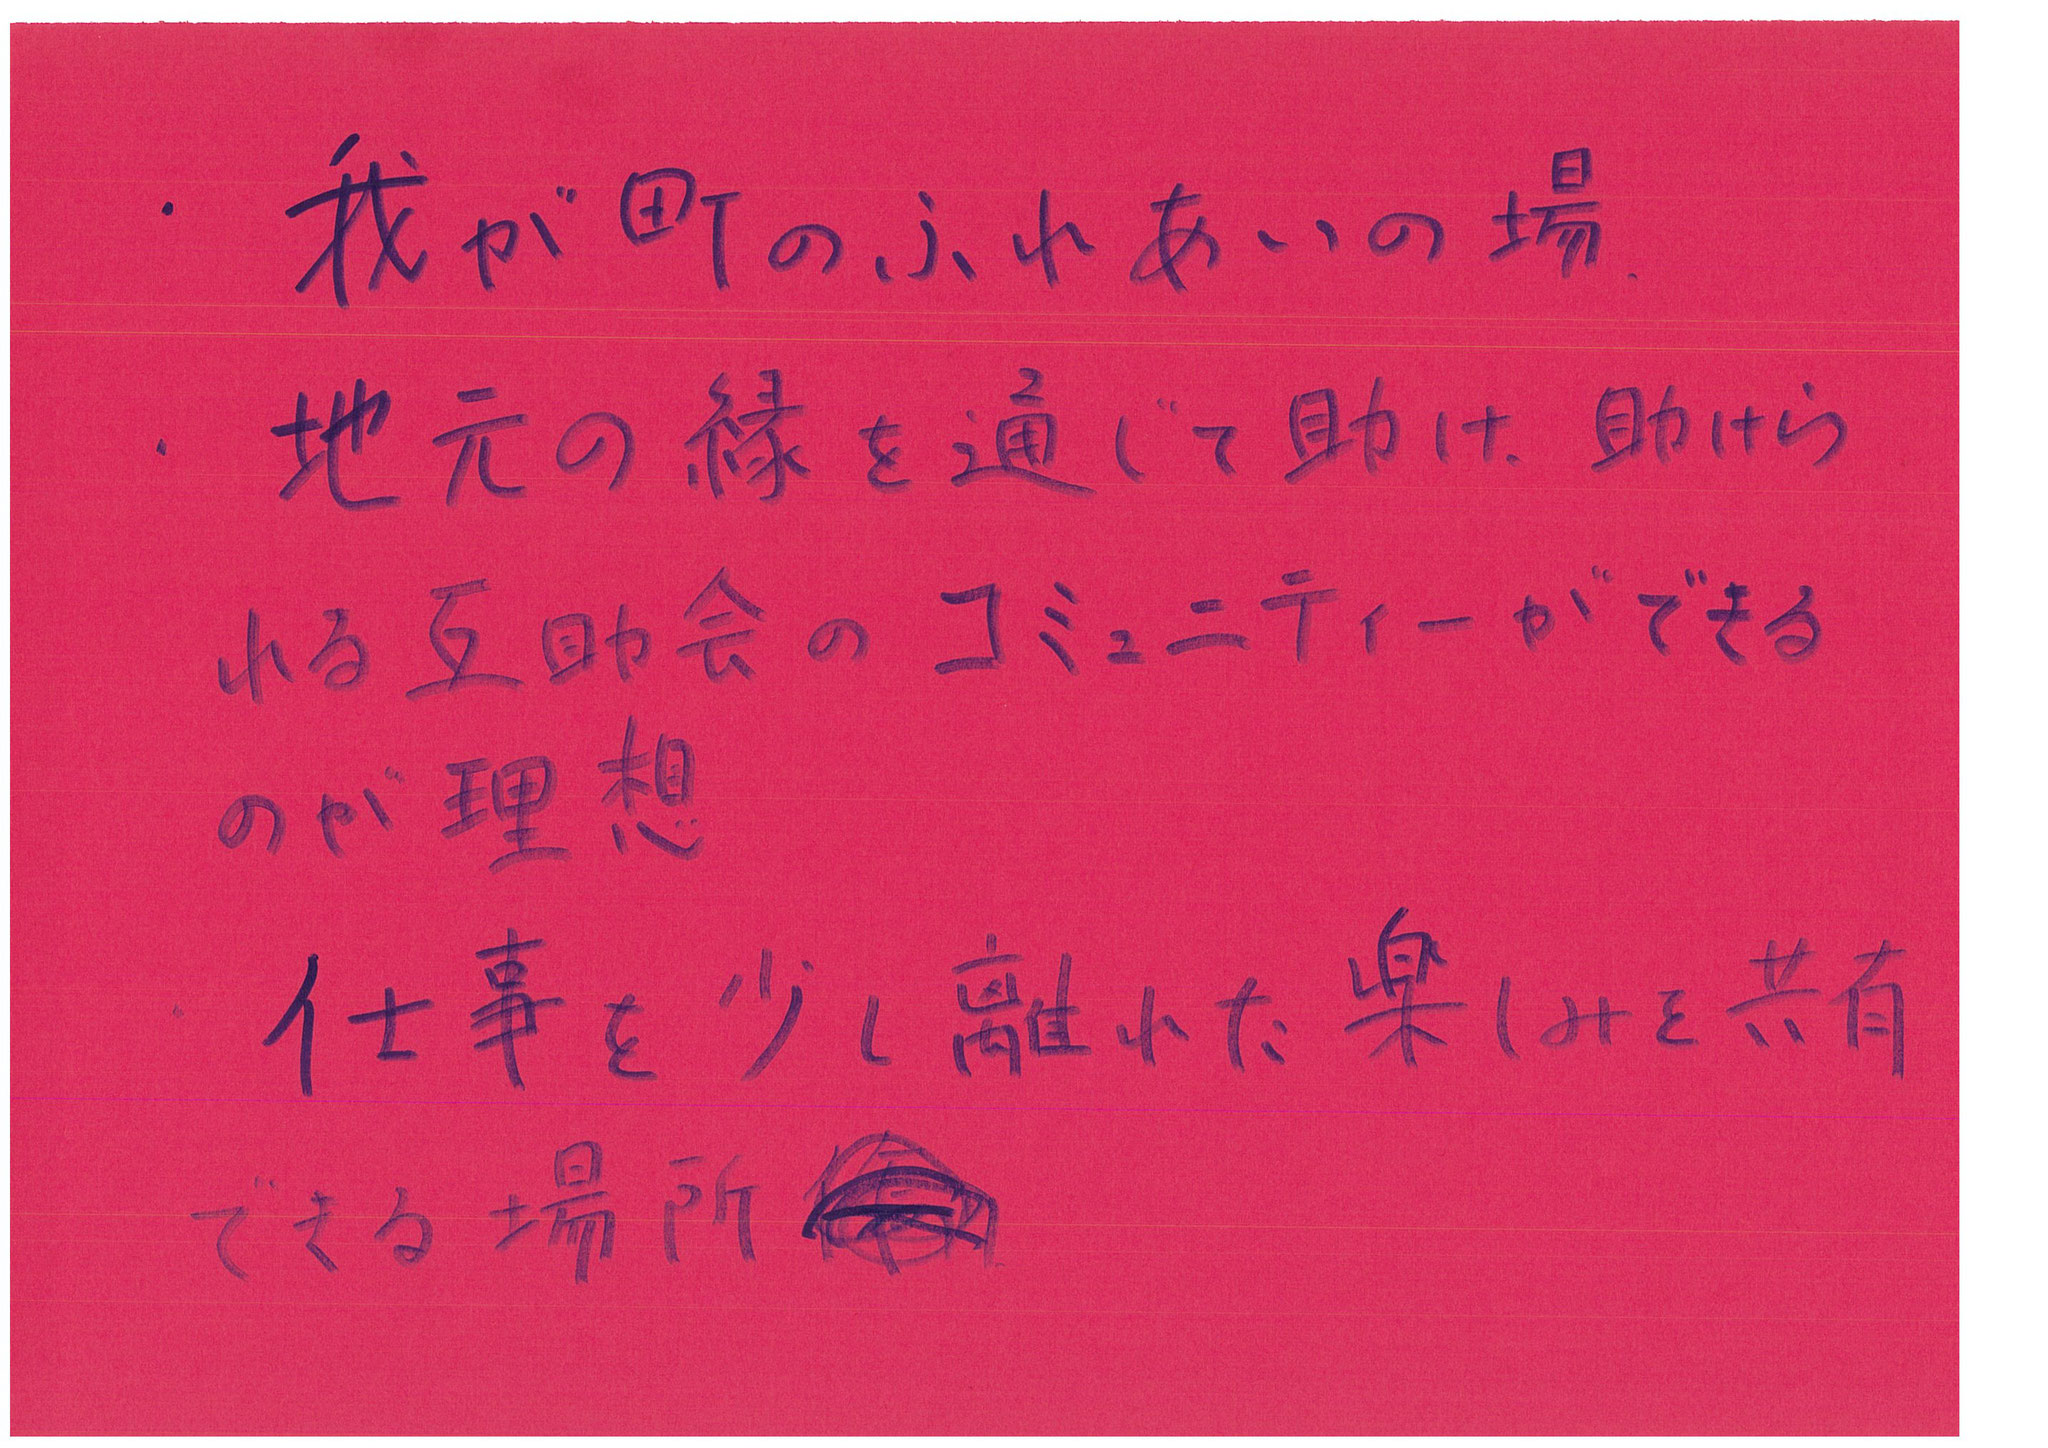 ・ 我が町のふれあいの場.
・ 地元の縁を通じて助け、助けら
れる互助会のコミュニティーができる
のが理想
・ 仕事を少し離れた楽しみを共有
できる場所